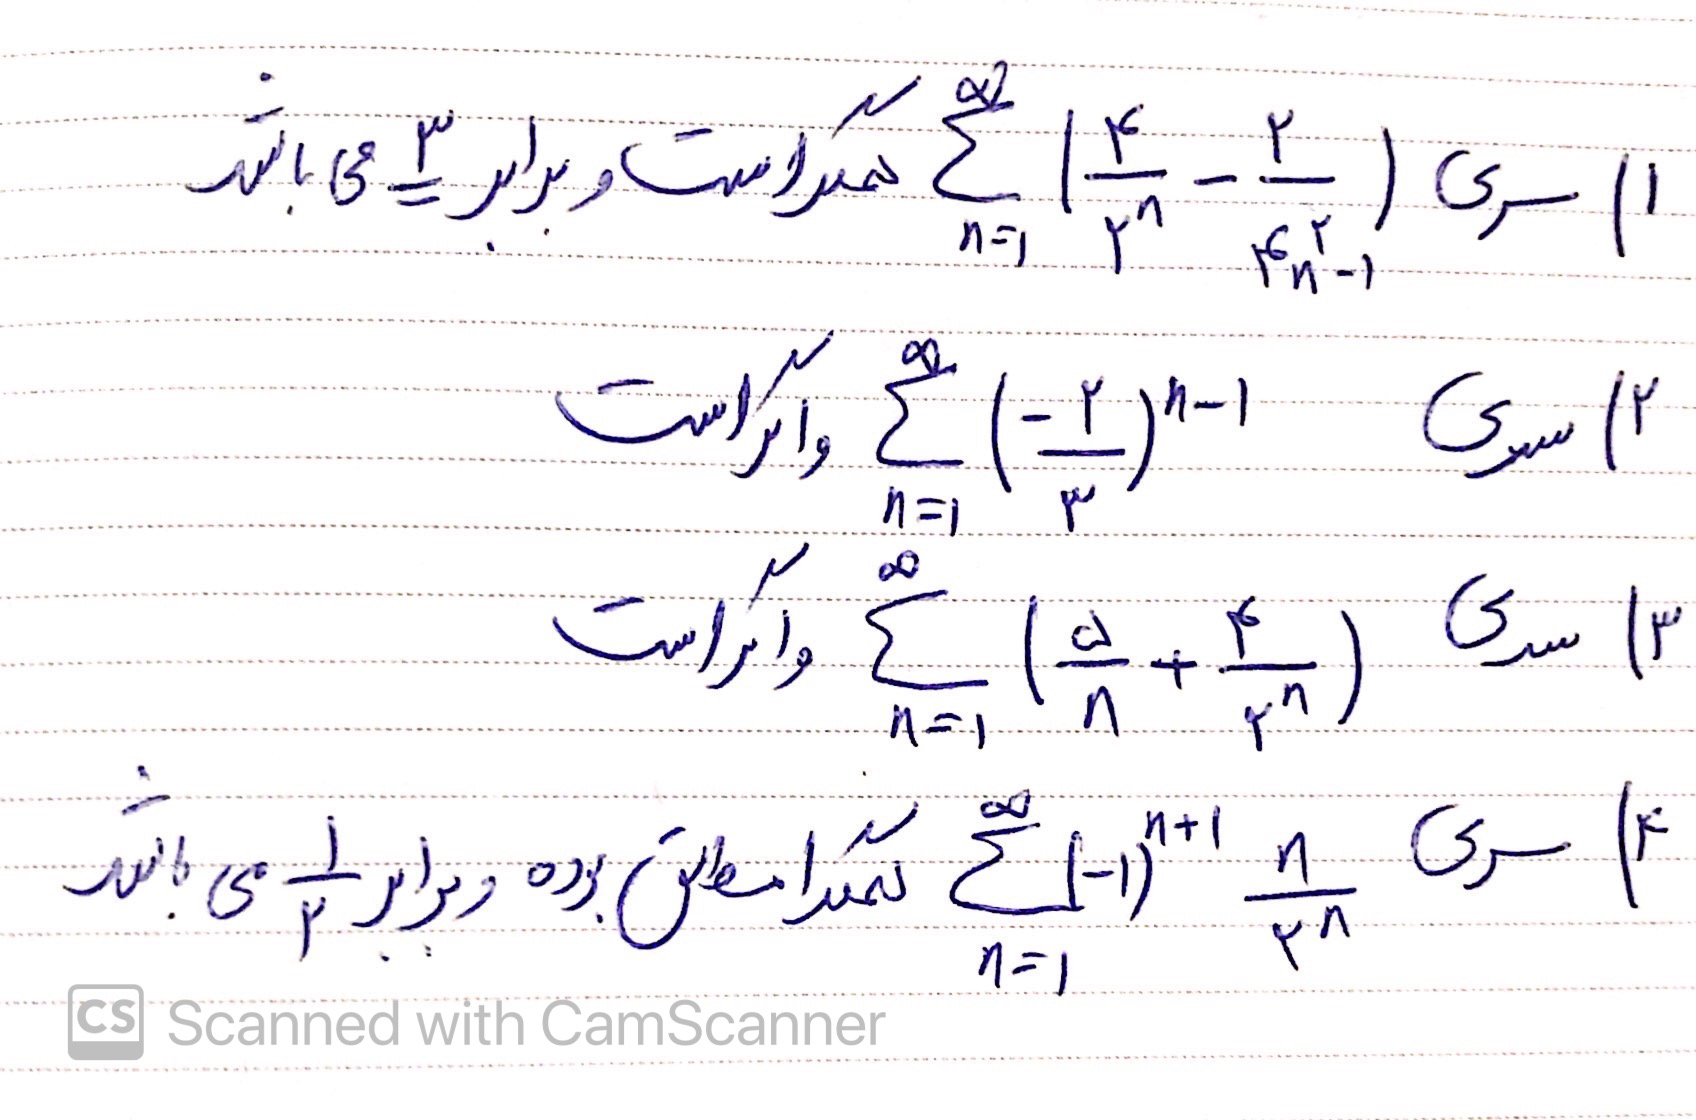 ۱) سری ∑_{n=۱}^{∞} (۴/۲^n - ۲/(۴n^۲-۱)) همگراست و برابر ۳ می باشد
۲) سری ∑_{n=۱}^{∞} (-۲/۳)^{n-۱} واگراست
۳) سری ∑_{n=۱}^{∞} (۵/n + ۴/۲^n) واگراست
۴) سری ∑_{n=۱}^{∞} (-۱)^{n+۱} n/۲^n همگرا مطلق بوده و برابر ۱/۲ می باشد
CS Scanned with CamScanner